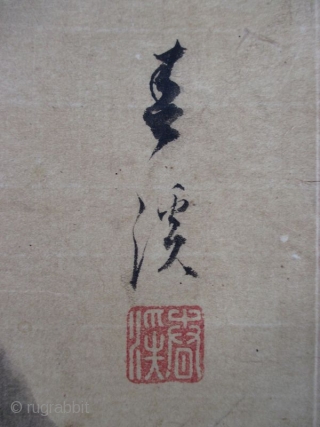 春溪
© rugrabbit